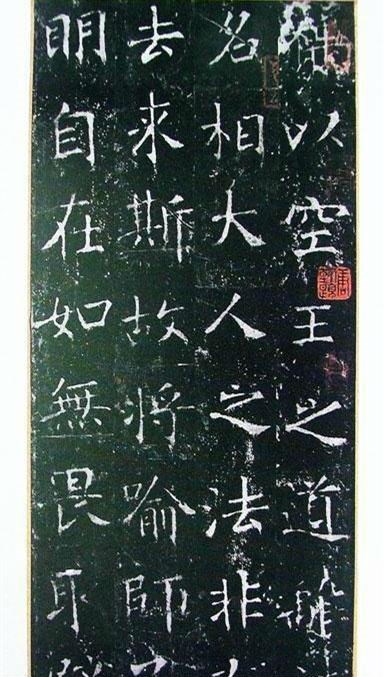 以空王之道離
名相大人之法非
去來斯故將喻師
明自在如無畏取